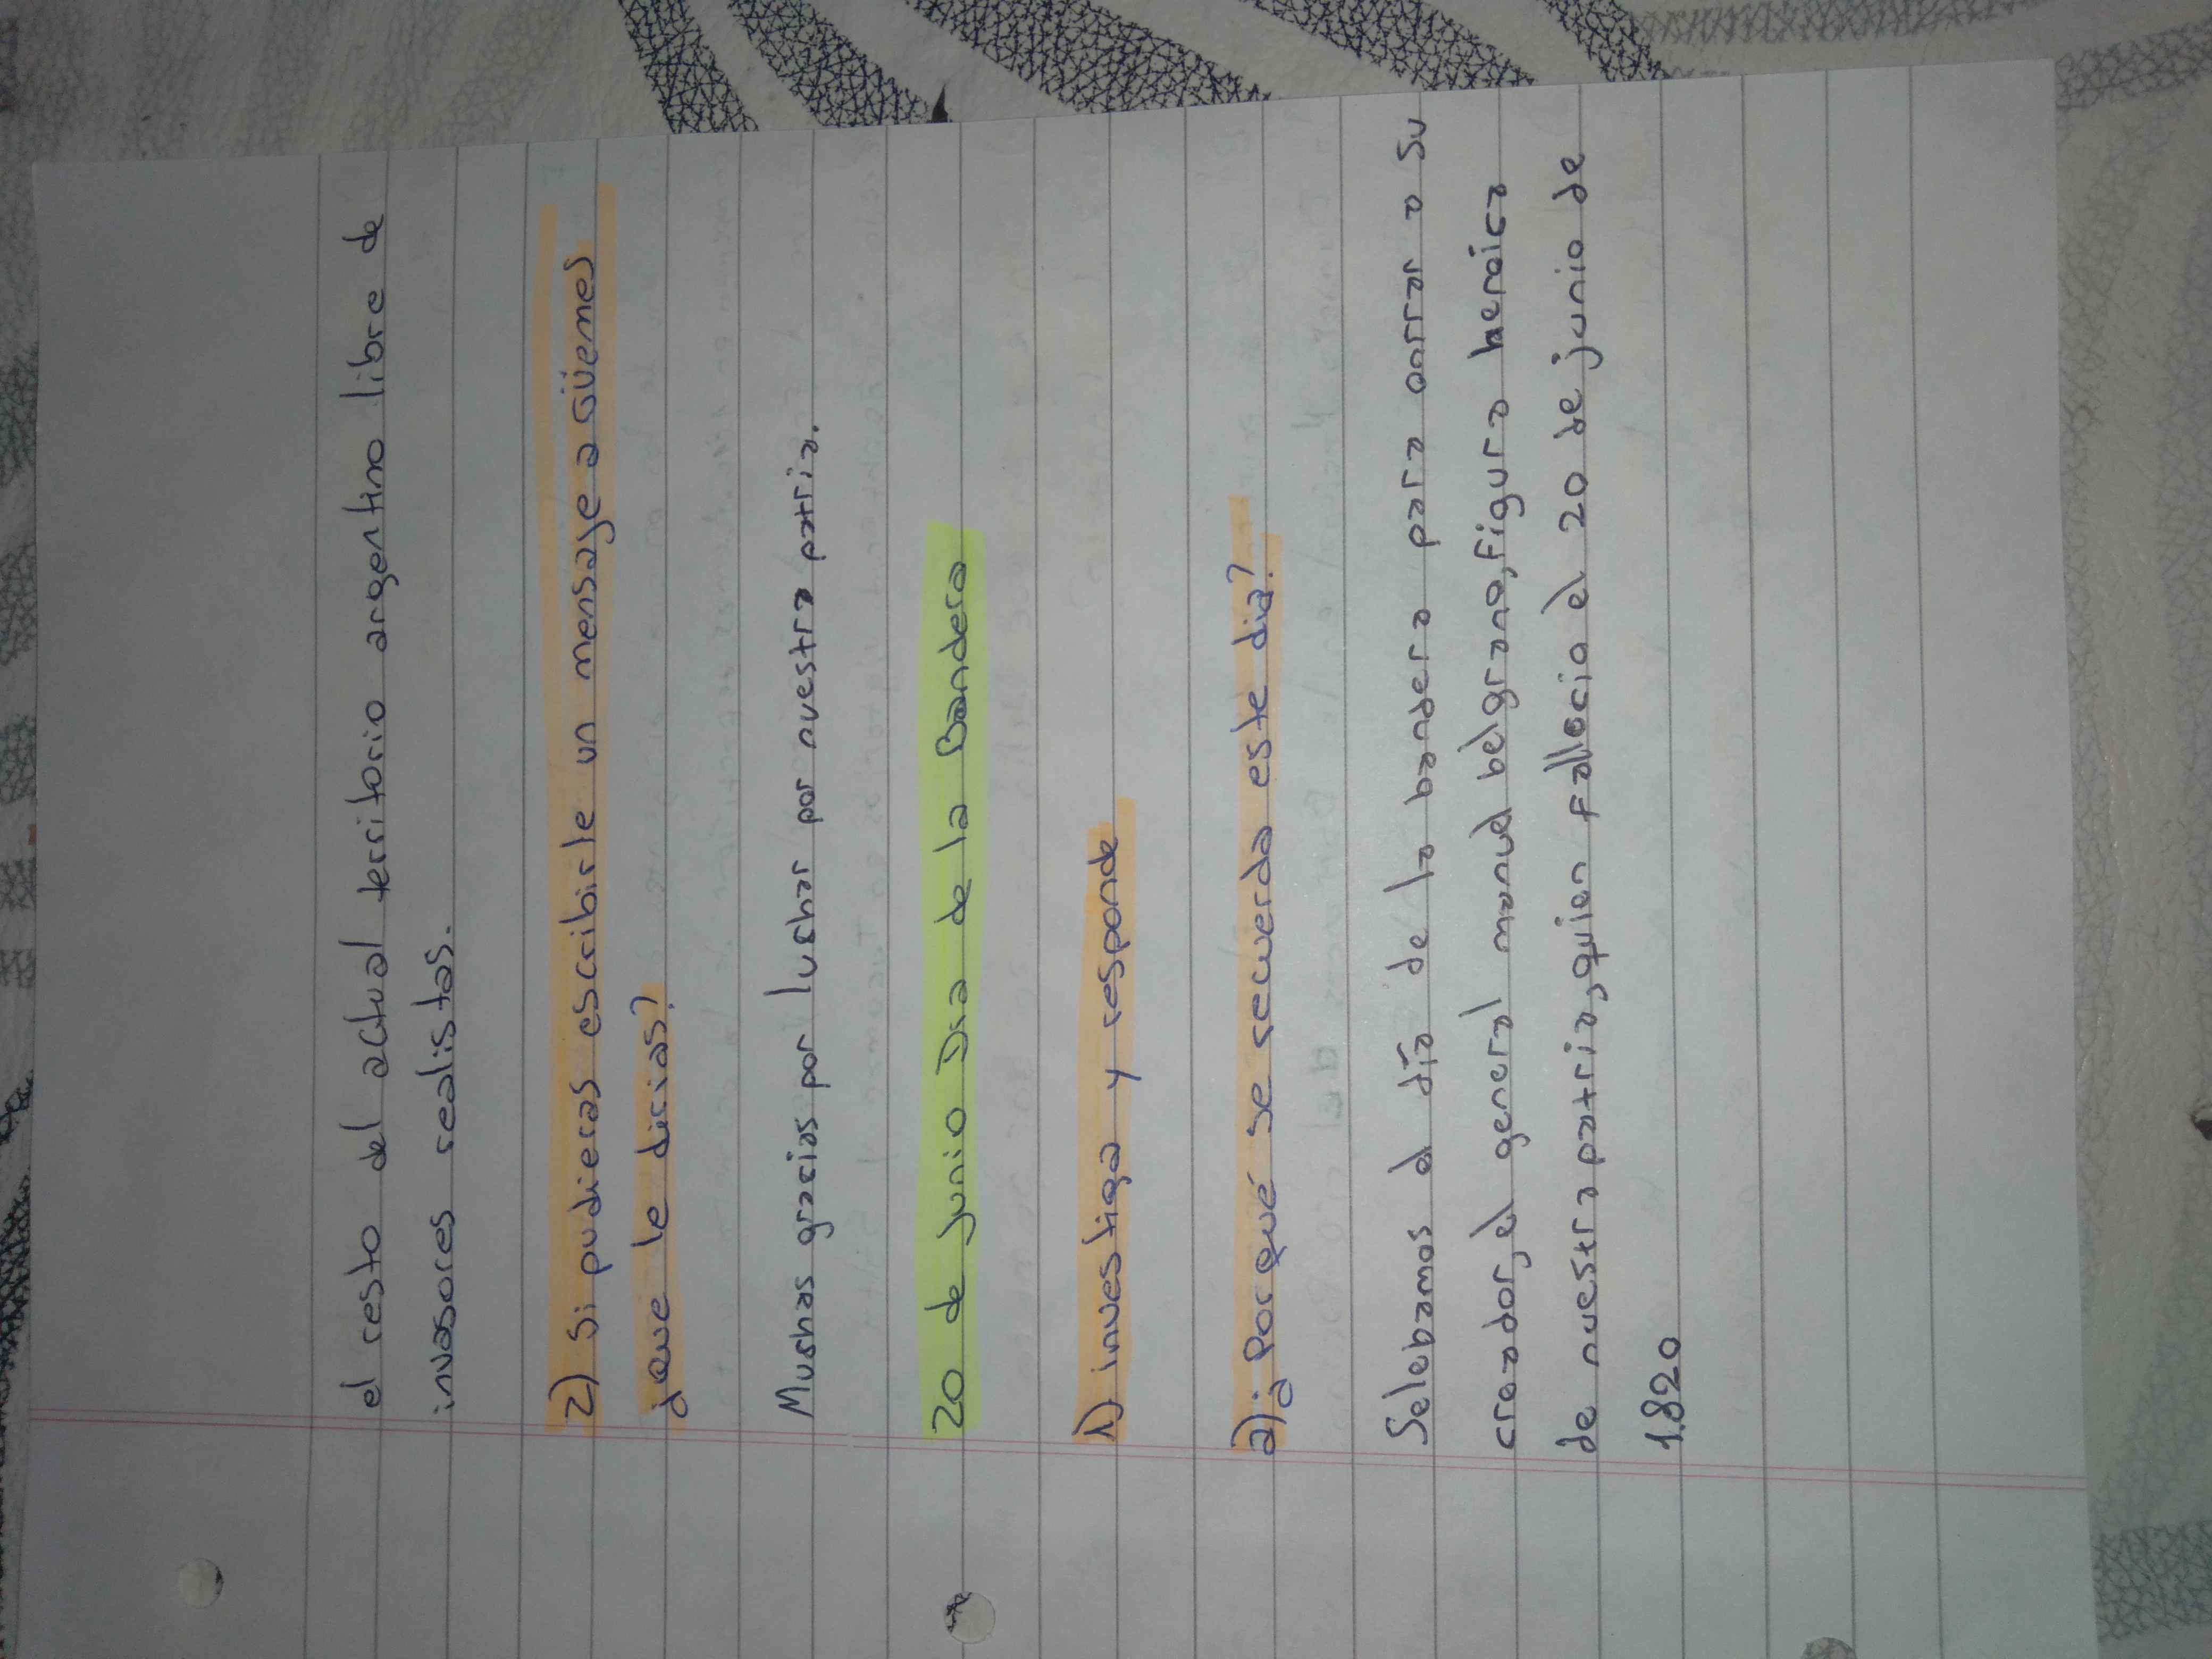 el resto del actual territorio argentino libre de
invasores realistas.
2) Si pudieras escribirle un mensaje a Güemes
¿que le dirias?
Mushas grasias por lushar por nuestra patria.
20 de junio Dia de la Bandera
1) investiga y responde
a) ¿Por qué se recuerda este dia?
Selebamos el día de la bandera para onrrar a su
creador, el general manuel belgrano, figura heroica
de nuestra patria, quien fallecio el 20 de junio de
1.820